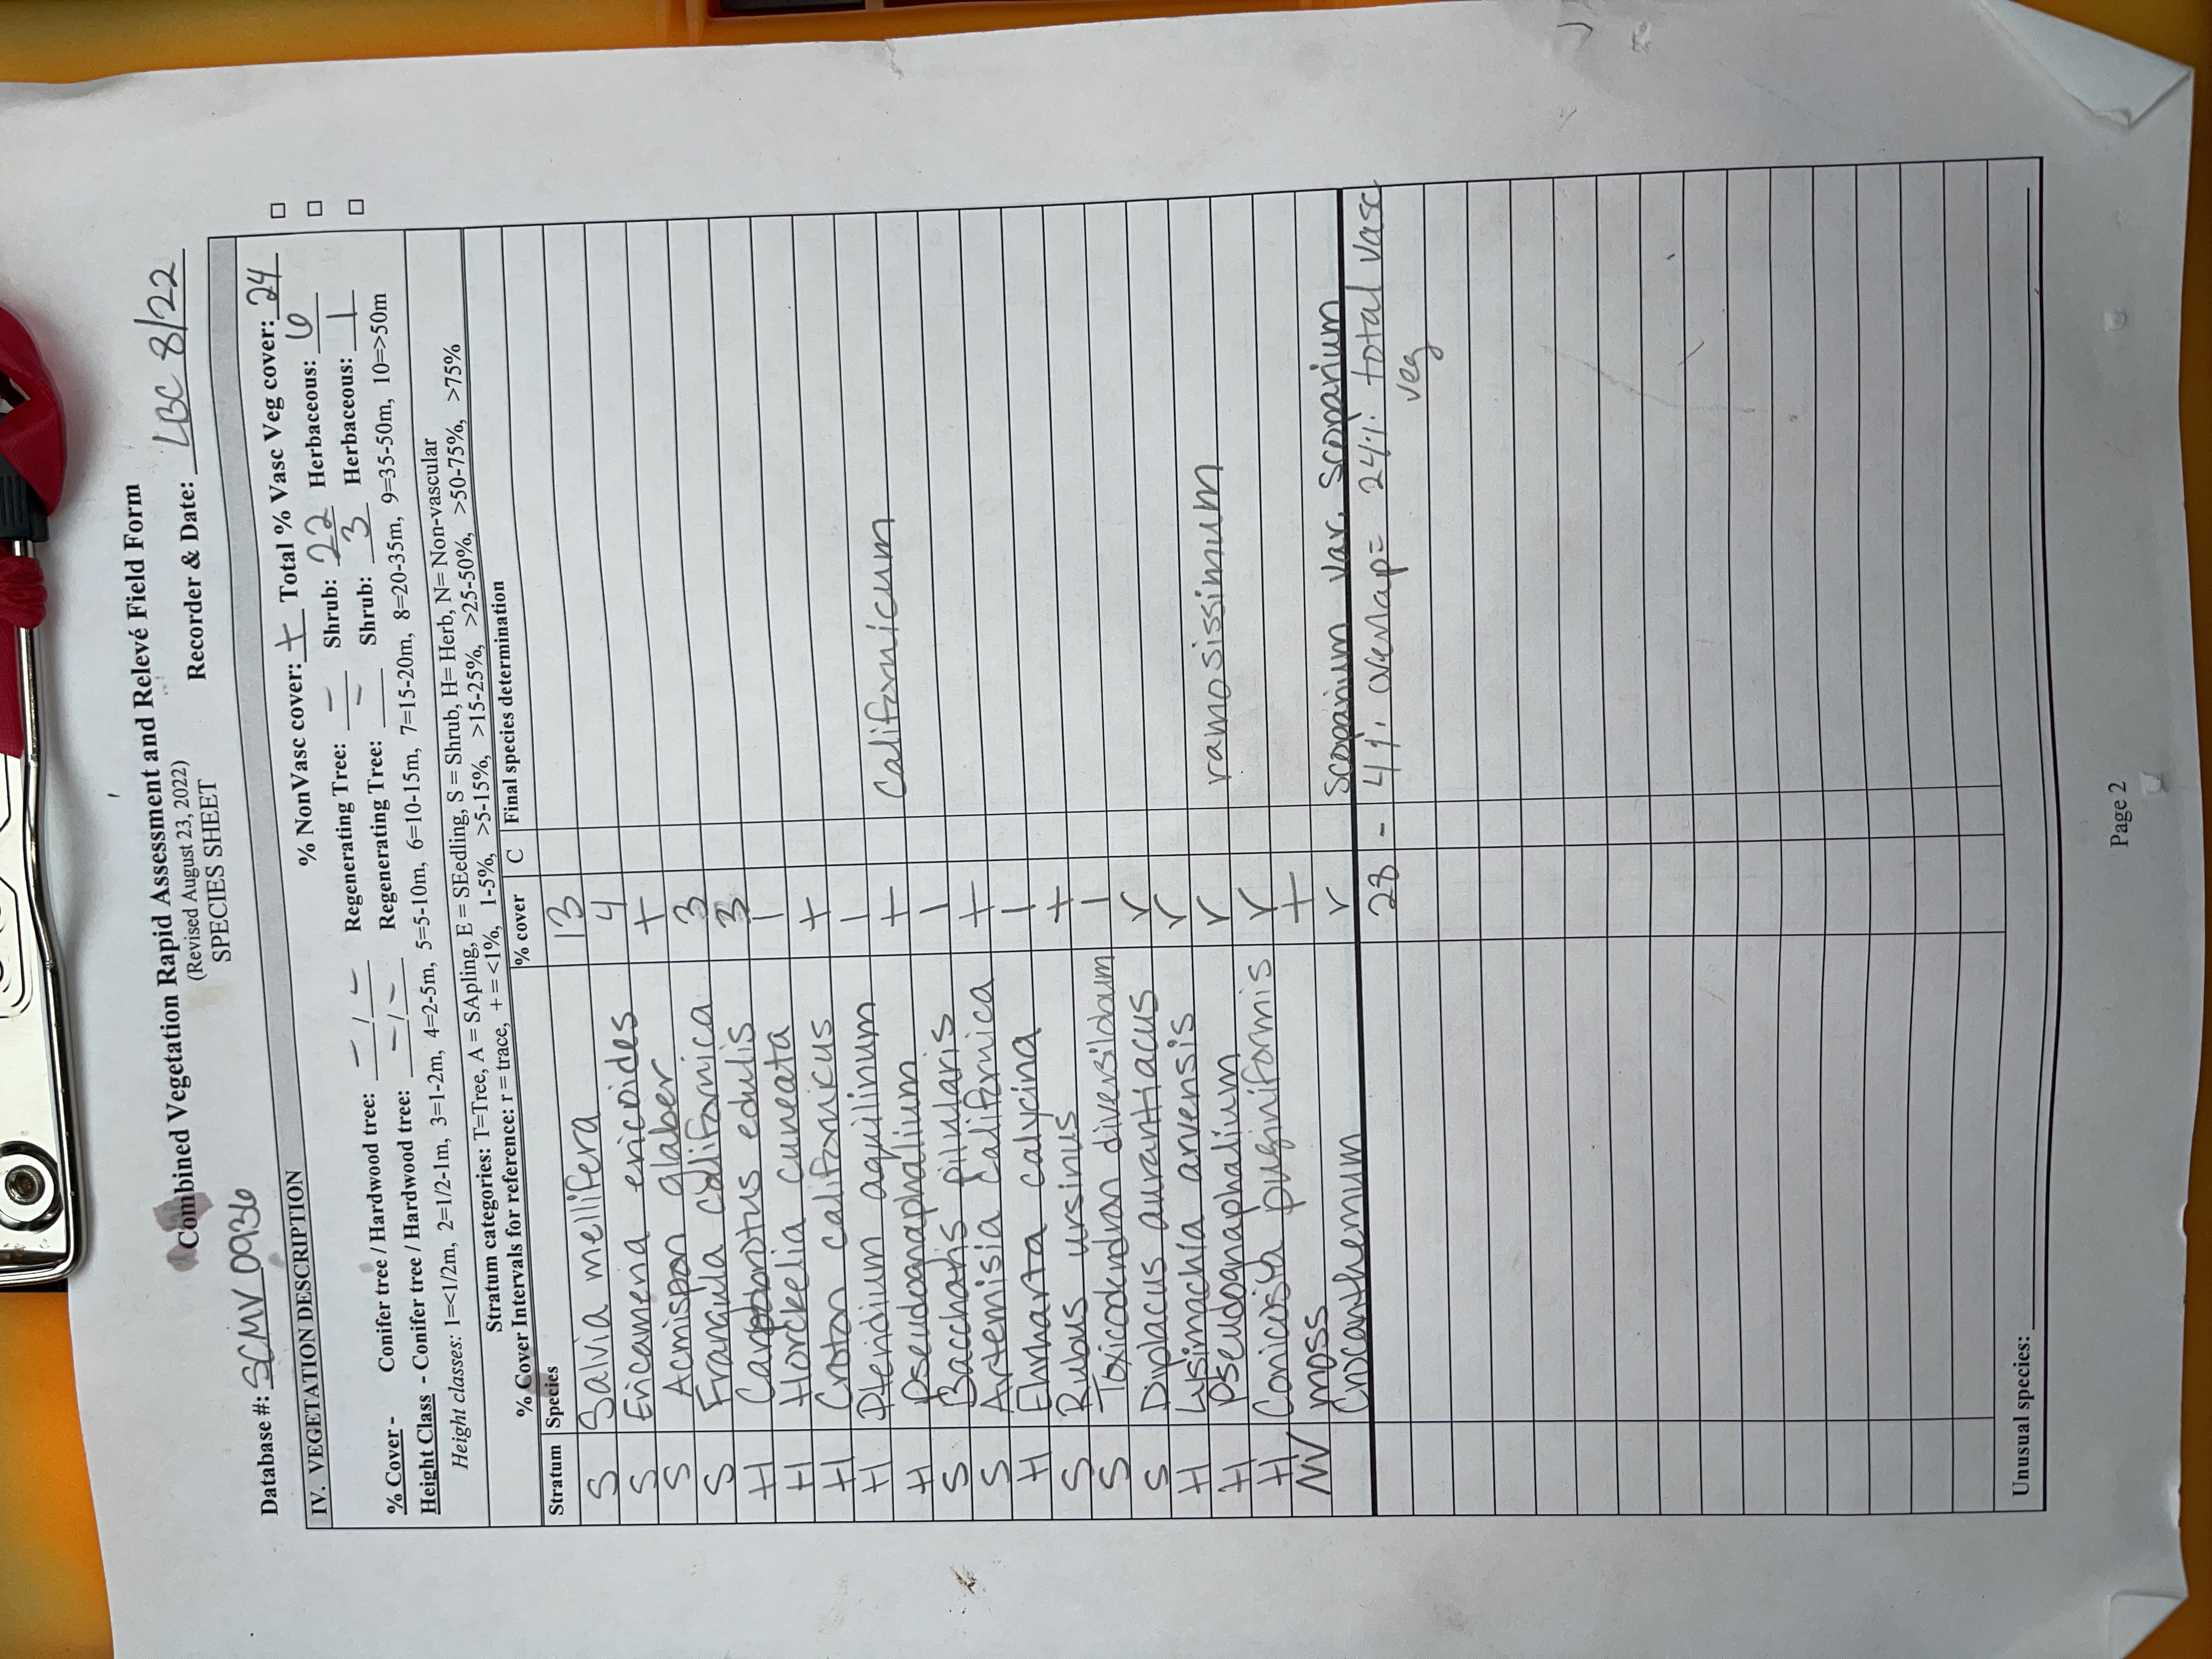 Combined Vegetation Rapid Assessment and Relevé Field Form
(Revised August 23, 2022)
SPECIES SHEET
Database #: SCMV 0936 Recorder & Date: LBC 8/22
IV. VEGETATION DESCRIPTION
% NonVasc cover: + Total % Vasc Veg cover: 24
% Cover - Conifer tree / Hardwood tree: - / - Regenerating Tree: - Shrub: 22 Herbaceous: 6
Height Class - Conifer tree / Hardwood tree: - / - Regenerating Tree: - Shrub: 3 Herbaceous: 1
Height classes: 1=<1/2m, 2=1/2-1m, 3=1-2m, 4=2-5m, 5=5-10m, 6=10-15m, 7=15-20m, 8=20-35m, 9=35-50m, 10=>50m
Stratum categories: T=Tree, A = SApling, E = SEedling, S = Shrub, H= Herb, N= Non-vascular
% Cover Intervals for reference: r = trace, + = <1%, 1-5%, >5-15%, >15-25%, >25-50%, >50-75%, >75%
Stratum Species % cover C Final species determination
S Salvia mellifera 13
S Ericamena ericoides 4
S Acmispon glaber +
S Frangula californica 3
H Carpobrotus edulis 3
H Horckelia cuneata 1
H Croton californicus +
H Pteridium aquilinum 1
H Pseudognaphalium + Californicum
S Baccharis pilularis 1
S Artemisia californica +
H Ehrharta calycina 1
S Rubus ursinus +
S Toxicodendron diversilobum 1
S Diplacus aurantiacus r
H Lysimachia arvensis r
H Pseudognaphalium r ramosissimum
H Conicosia pugioniformis r
NV moss +
Crocanthemum r Scoparium var. Scoparium
28 - 4% overlap = 24% total vasc
veg
Unusual species:
Page 2